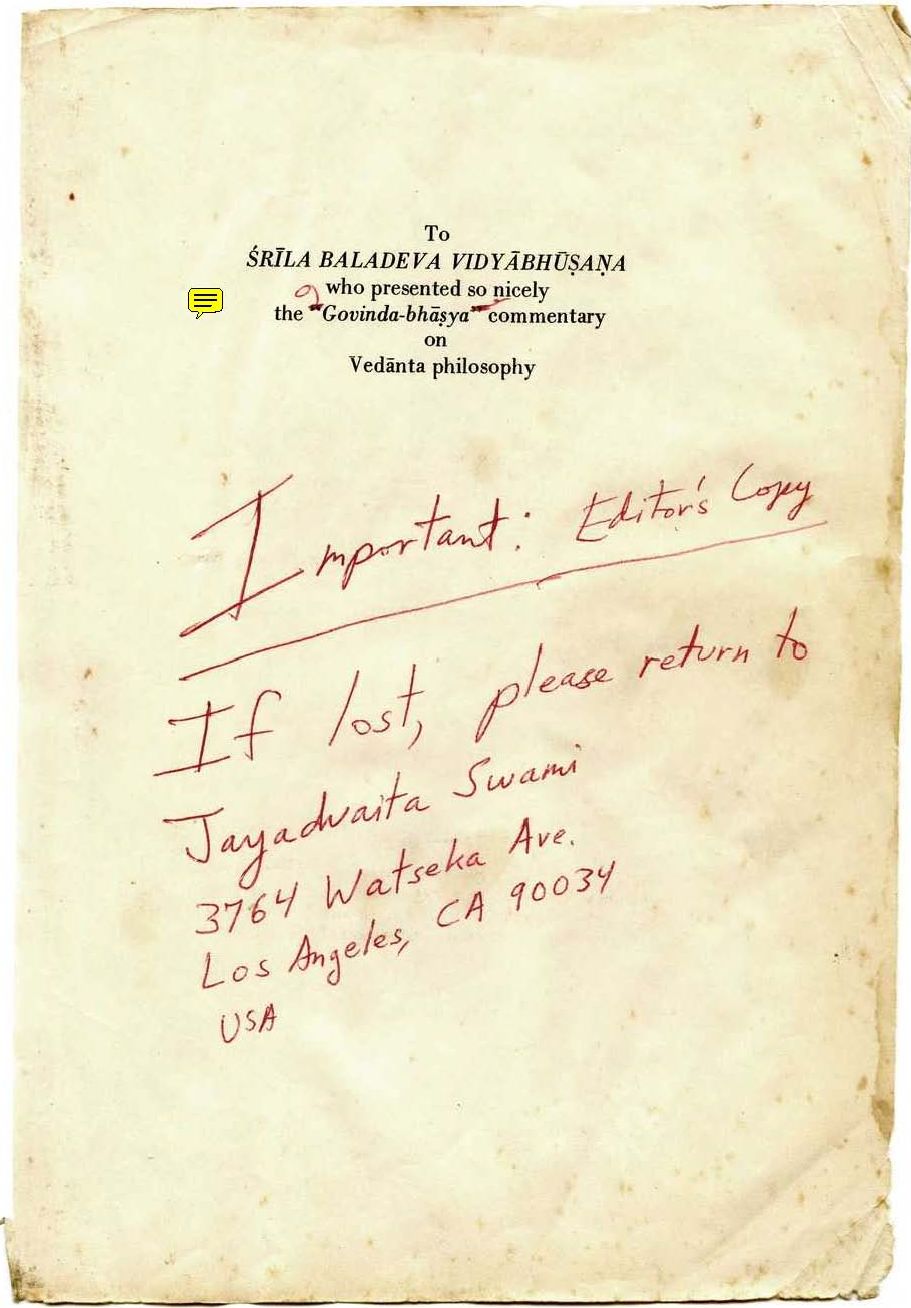 To
ŚRĪLA BALADEVA VIDYĀBHŪṢAṆA
who presented so nicely
the "Govinda-bhāṣya" commentary
on
Vedānta philosophy
Important: Editor's Copy
If lost, please return to
Jayadvaita Swami
3764 Watseka Ave.
Los Angeles, CA 90034
USA